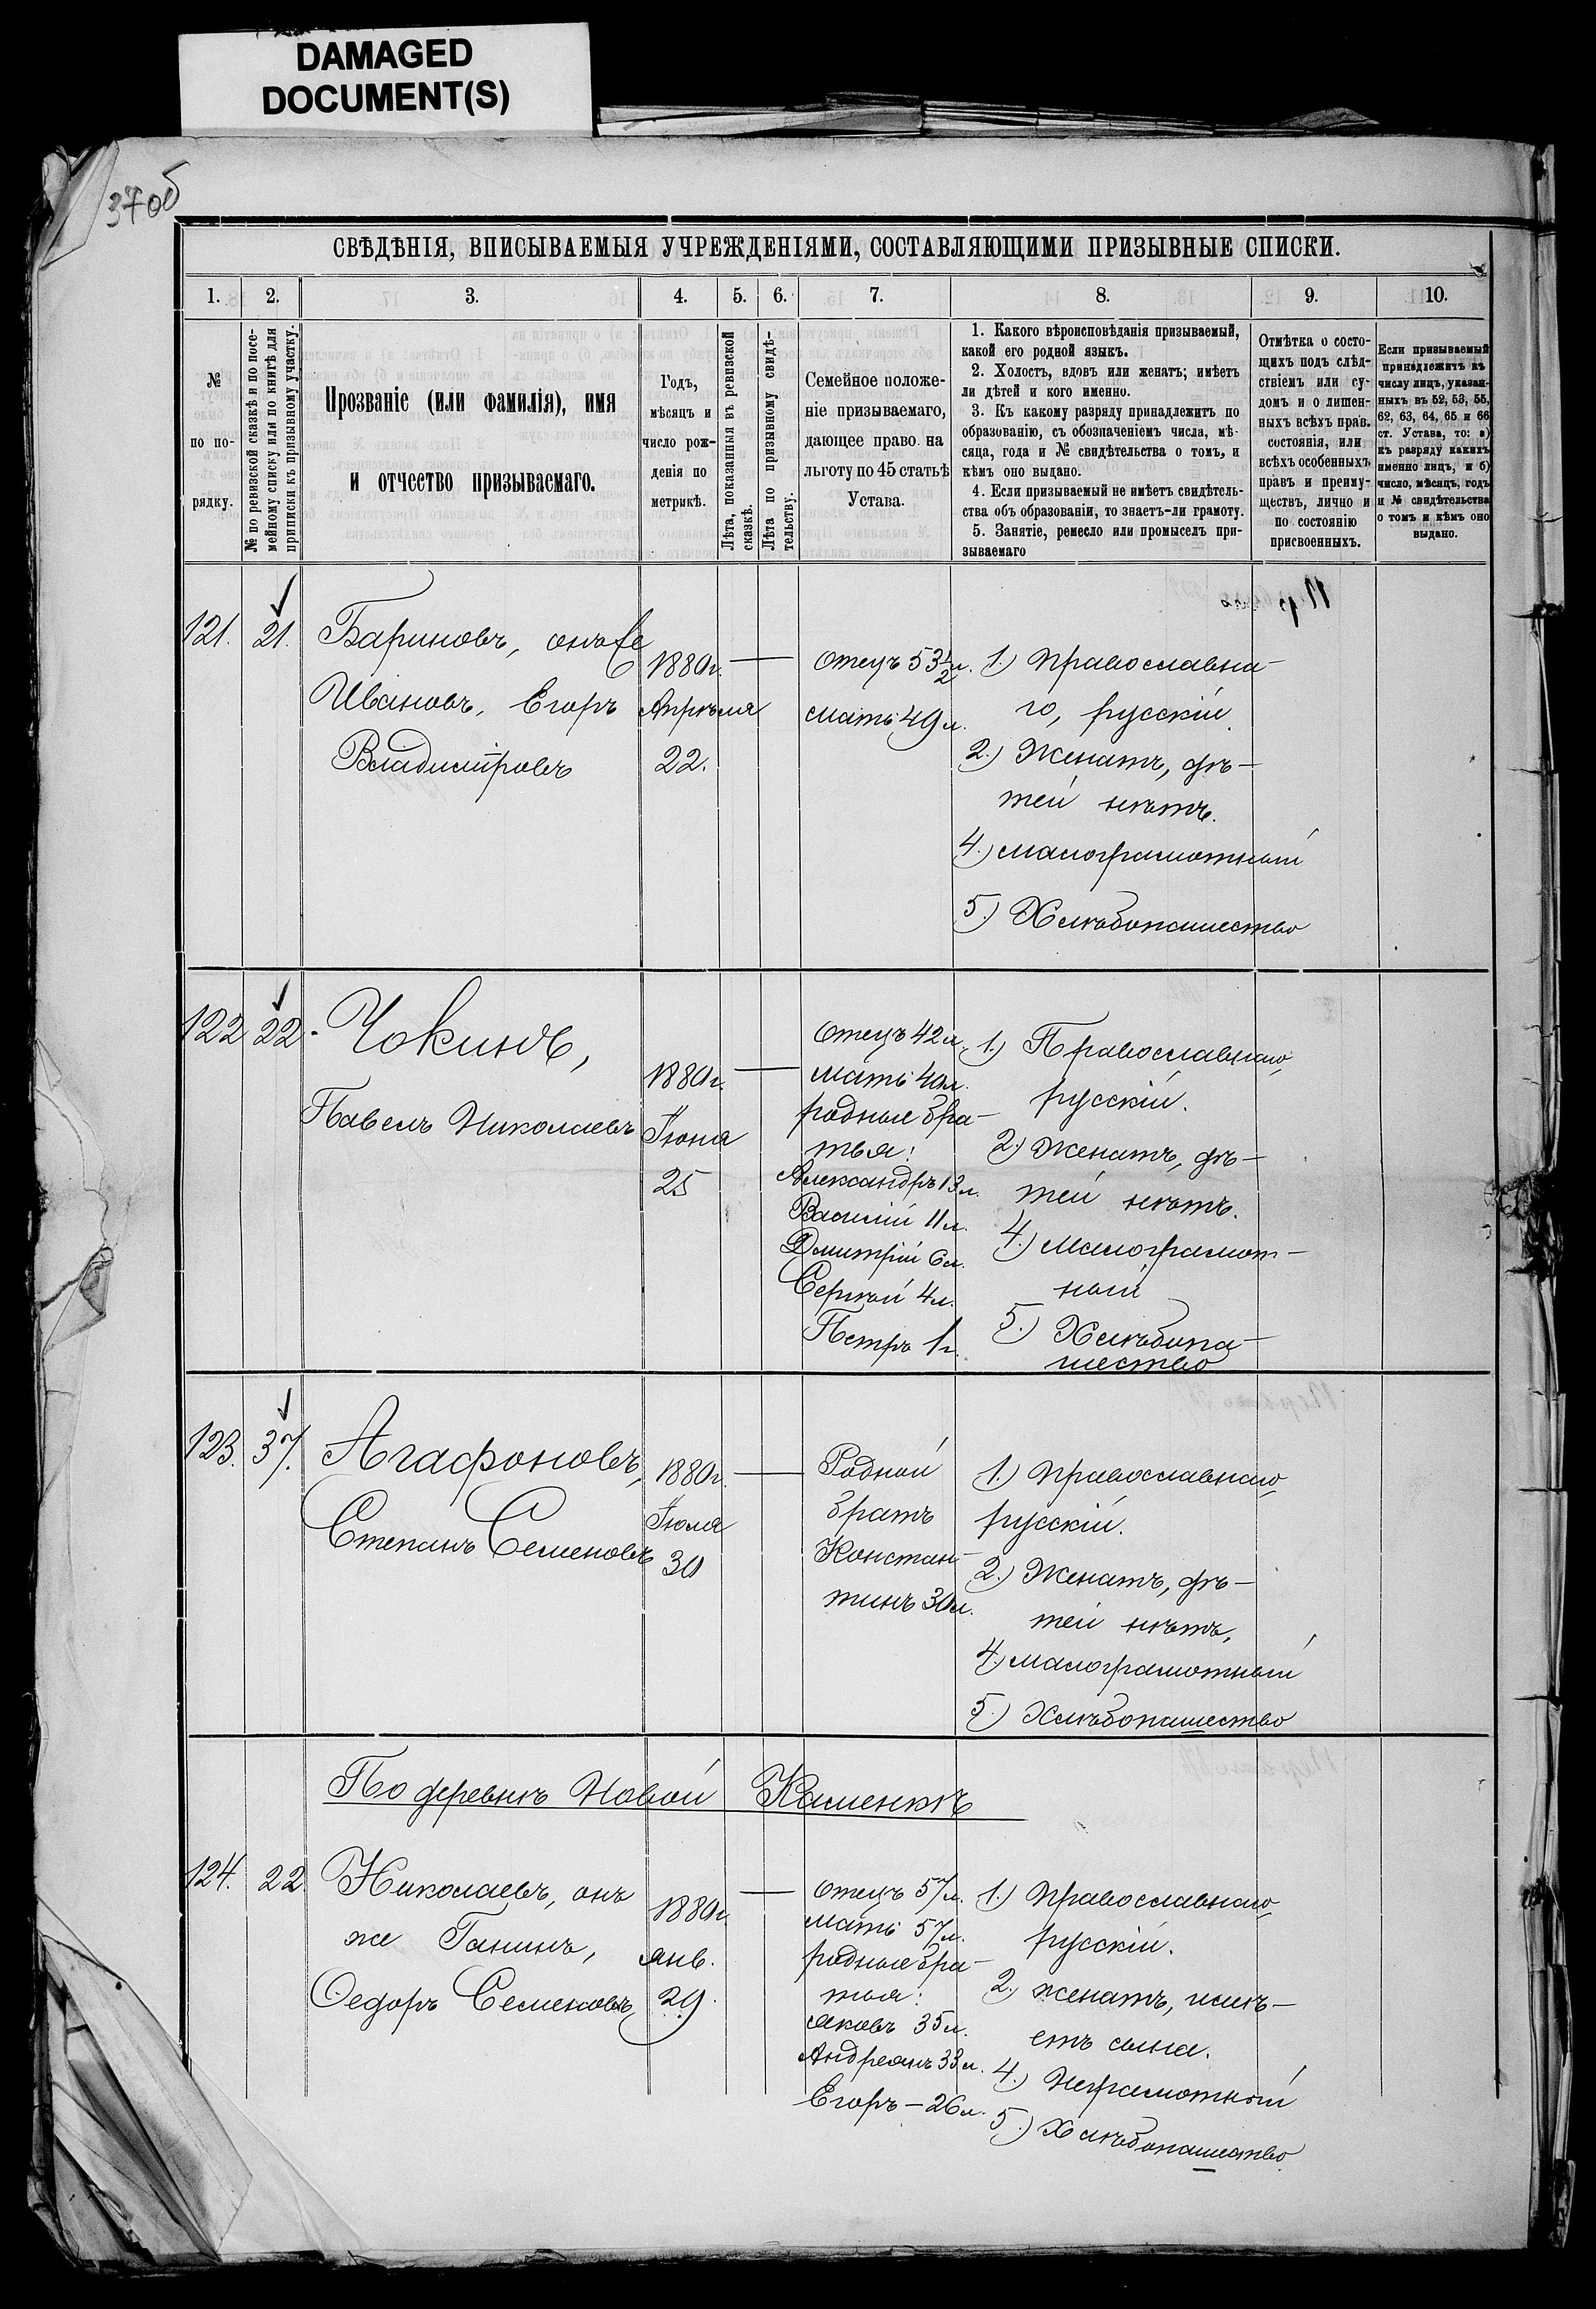 DAMAGED
DOCUMENT(S)
37об
СВѢДѢНІЯ, ВПИСЫВАЕМЫЯ УЧРЕЖДЕНІЯМИ, СОСТАВЛЯЮЩИМИ ПРИЗЫВНЫЕ СПИСКИ.
1. 2. 3. 4. 5. 6. 7. 8. 9. 10.
№
по по-
рядку.
№ по ревизской сказкѣ и по посе-
мейному списку или по книгѣ для
приписки къ призывному участку.
Прозваніе (или фамилія), имя
и отчество призываемаго.
Годъ,
мѣсяцъ и
число рож-
денія по
метрикѣ.
Лѣта, показанныя въ ревизской
сказкѣ.
Лѣта по призывному свидѣ-
тельству.
Семейное положе-
ніе призываемаго,
дающее право на
льготу по 45 статьѣ
Устава.
1. Какого вѣроисповѣданія призываемый,
какой его родной языкъ.
2. Холостъ, вдовъ или женатъ; имѣетъ
ли дѣтей и кого именно.
3. Къ какому разряду принадлежитъ по
образованію, съ обозначеніемъ числа, мѣ-
сяца, года и № свидѣтельства о томъ, и
кѣмъ оно выдано.
4. Если призываемый не имѣетъ свидѣтель-
ства объ образованіи, то знаетъ-ли грамоту.
5. Занятіе, ремесло или промыселъ при-
зываемаго
Отмѣтка о состо-
ящихъ подъ слѣд-
ствіемъ или су-
домъ и о лишен-
ныхъ всѣхъ прав.
состоянія, или
всѣхъ особенныхъ
правъ и преиму-
ществъ, лично и
по состоянію
присвоенныхъ.
Если призываемый
принадлежитъ къ
числу лицъ, указан-
ныхъ въ 52, 53, 55,
62, 63, 64, 65 и 66
ст. Устава, то: а)
къ разряду какихъ
именно лицъ, и б)
число, мѣсяцъ, годъ
и № свидѣтельства
о томъ и кѣмъ оно
выдано.
121. 21.
Бариновъ, онъ же
Ивановъ, Егоръ
Владиміровъ
1880г.
Апрѣля
22.
отецъ 53½л.
мать 49л.
1.) Православна-
го, русскій
2.) Женатъ, дѣ-
тей нѣтъ.
4.) малограмотный
5.) Хлѣбопашество
122 22.
Чокинъ,
Павелъ Николаевъ
1880г.
Іюня
25
отецъ 42л.
мать 40л.
родные бра-
тья:
Александръ 13л.
Василій 11л.
Дмитрій 6л.
Сергѣй 4л.
Петръ 1г.
1.) Православнаго,
русскій.
2.) Женатъ, дѣ-
тей нѣтъ.
4.) Малограмот-
ный
5.) Хлѣбопа-
шество
123. 37.
Агафоновъ,
Степанъ Семеновъ
1880г.
Іюля
30
Родной
братъ
Констан-
тинъ 30л.
1.) Православнаго,
русскій.
2.) Женатъ, дѣ-
тей нѣтъ.
4.) малограмотный
5.) Хлѣбопашество
По деревнѣ Новой Каменкѣ
124. 22
Николаевъ, онъ
же Ганинъ,
Ѳедоръ Семеновъ
1880г
янв.
29.
отецъ 57л.
мать 57л.
родные бра-
тья:
Яковъ 35л.
Андреянъ 33л.
Егоръ — 26л.
1.) Православнаго,
русскій.
2.) женатъ, имѣ-
етъ сына.
4.) Неграмотный
5.) Хлѣбопашество